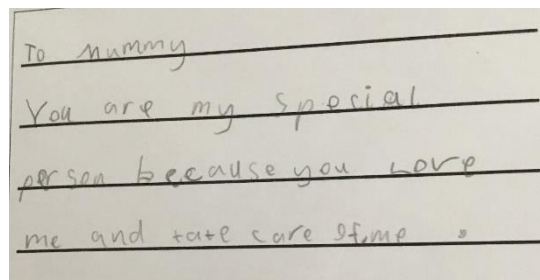 To Mummy
You are my special
person because you Love
me and tate care of me .